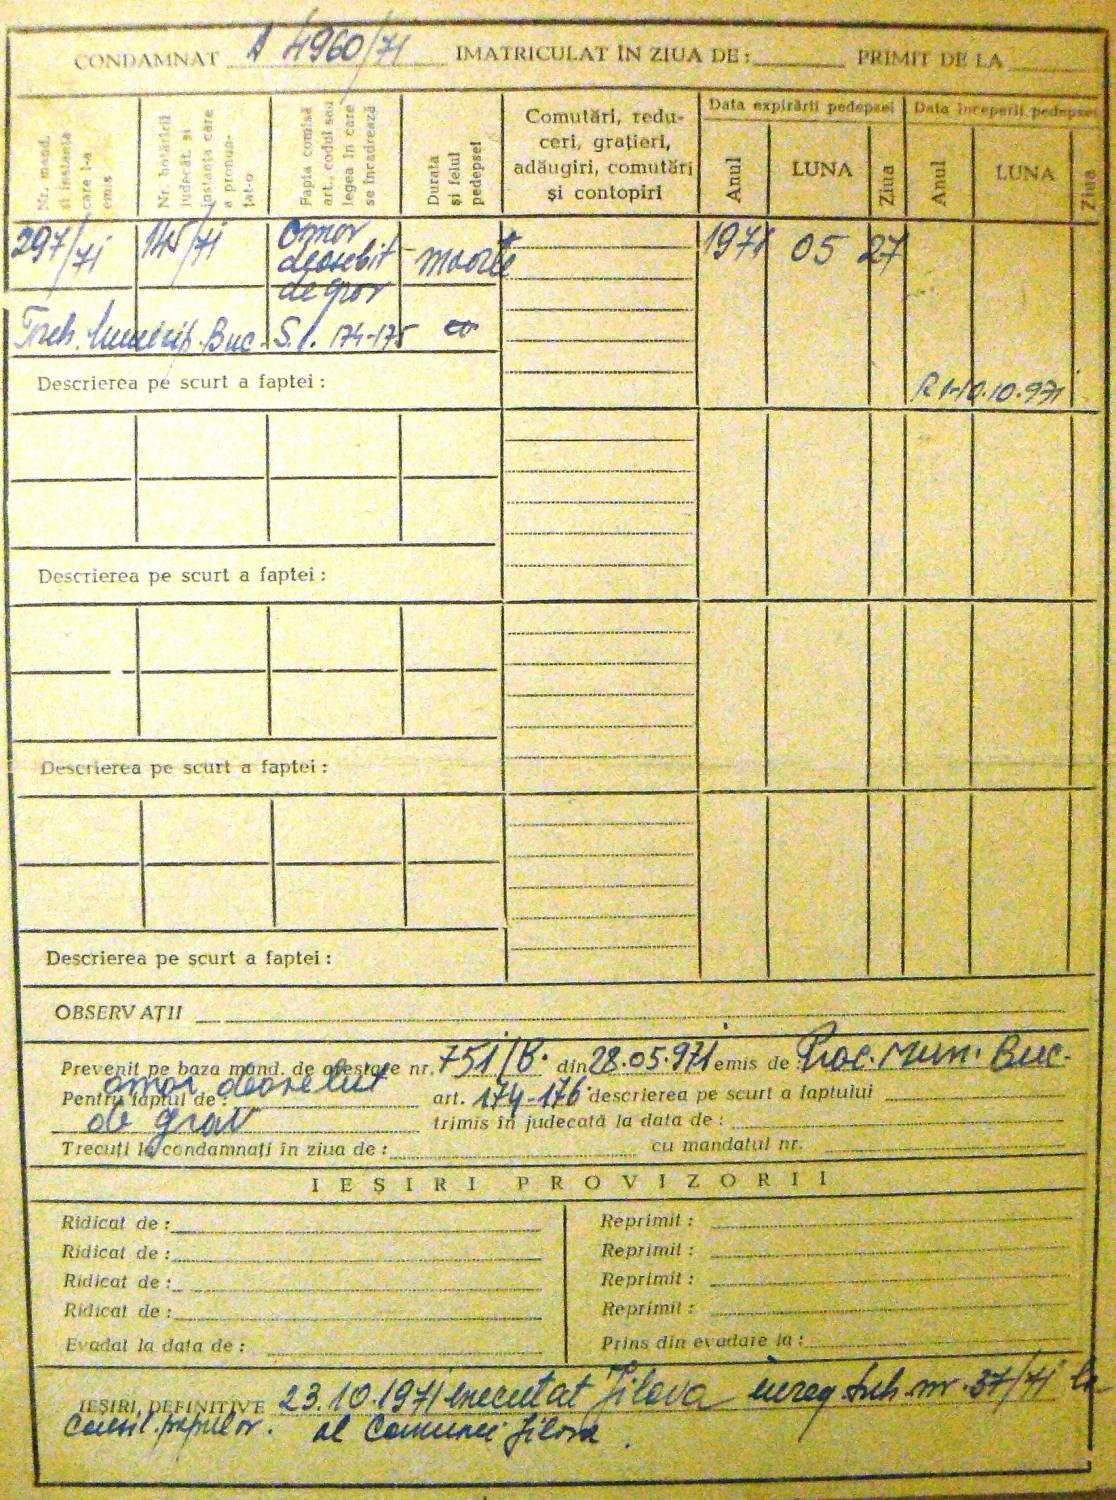 CONDAMNAT A 4960/71 IMATRICULAT ÎN ZIUA DE: PRIMIT DE LA
Nr. mand. și instanța care l-a emis
Nr. hotărîrii judecăt. și instanța care a pronunțat-o
Fapta comisă art. codul sau legea în care se încadrează
Durata și felul pedepsei
Comutări, reduceri, grațieri, adăugiri, comutări și contopiri
Data expirării pedepsei
Anul LUNA Ziua
Data începerii pedepsei
Anul LUNA Ziua
297/71 145/71 Omor deosebit de grav - moarte 1971 05 27
Buc. S.I. 174-175
R 10.10.971
Descrierea pe scurt a faptei :
Descrierea pe scurt a faptei :
Descrierea pe scurt a faptei :
Descrierea pe scurt a faptei :
OBSERVAȚII
Prevenit pe baza mand. de arestare nr. 751/B. din 28.05.971 emis de Proc. Mun. Buc.
Pentru faptul de : omor deosebit art. 174-176 descrierea pe scurt a faptului
de grav trimis în judecată la data de :
Trecuți la condamnați în ziua de : cu mandatul nr.
IEȘIRI PROVIZORII
Ridicat de : Reprimit :
Ridicat de : Reprimit :
Ridicat de : Reprimit :
Ridicat de : Reprimit :
Evadat la data de : Prins din evadare la :
IEȘIRI DEFINITIVE 23.10.1971 executat Jilava nr. 37/71 la
Consil. popular al Comunei Jilava.